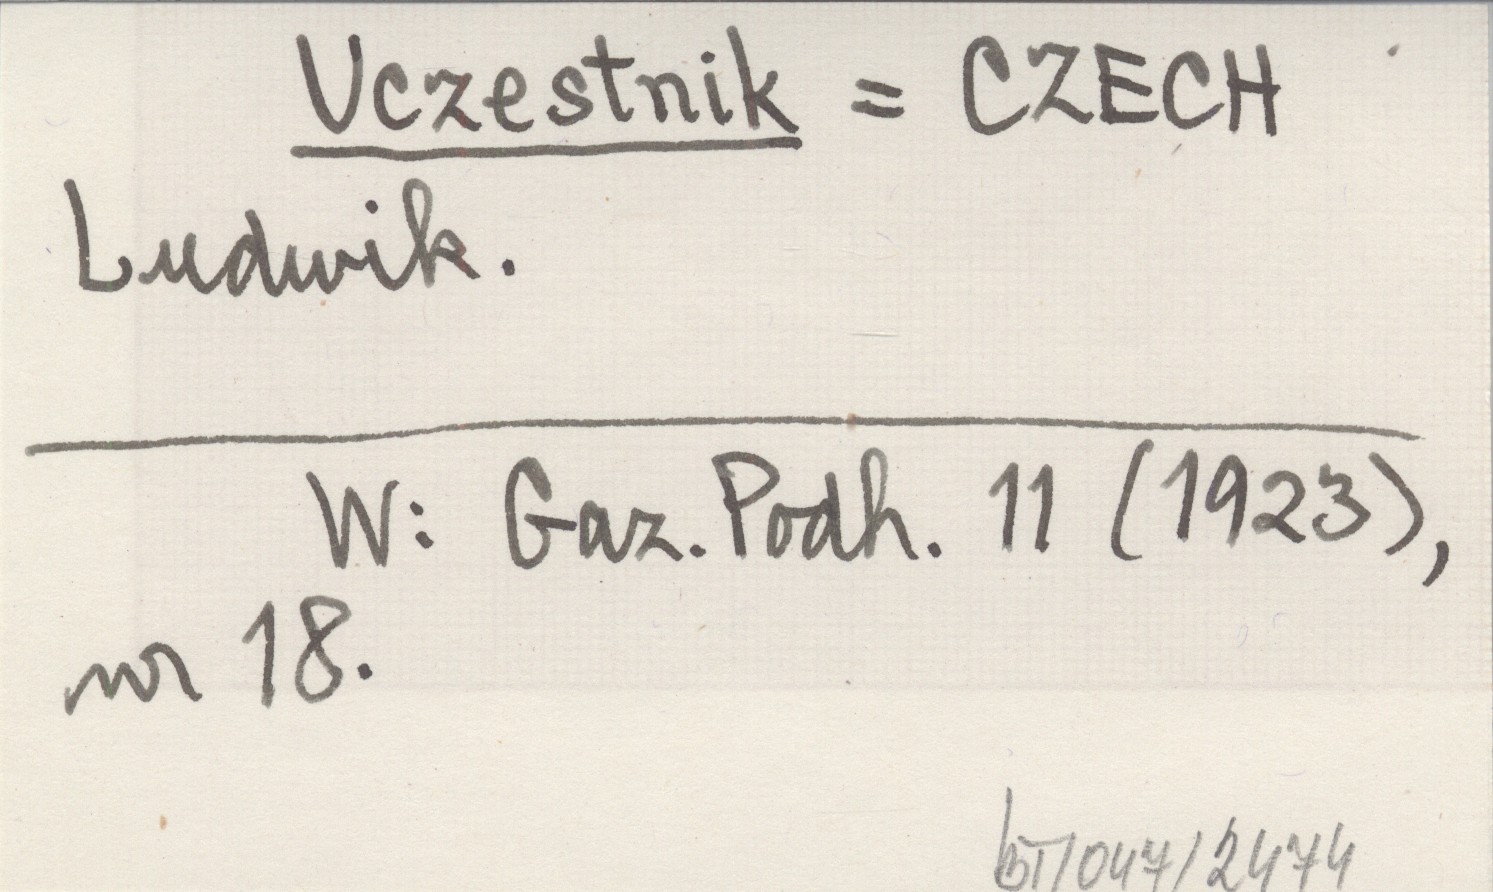 Uczestnik = CZECH
Ludwik.
W: Gaz. Podh. 11 (1923),
nr 18.
BT/047/2474